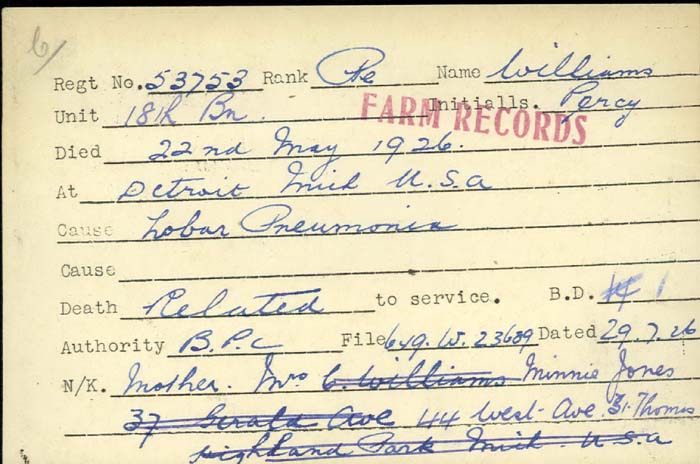 6/
Regt No. 53753 Rank Pte Name Williams
Unit 18th Bn. Initialls. Percy
FARM RECORDS
Died 22nd May 1926.
At Detroit Mich U.S.A
Cause Lobar Pneumonia
Cause
Death Related to service. B.D. 1
Authority B.P.C File 649.W.23689 Dated 29.7.26
N/K. Mother. Mrs C. Williams Minnie Jones
37 Gerald Ave 44 West Ave St. Thomas
Highland Park Mich U.S.A